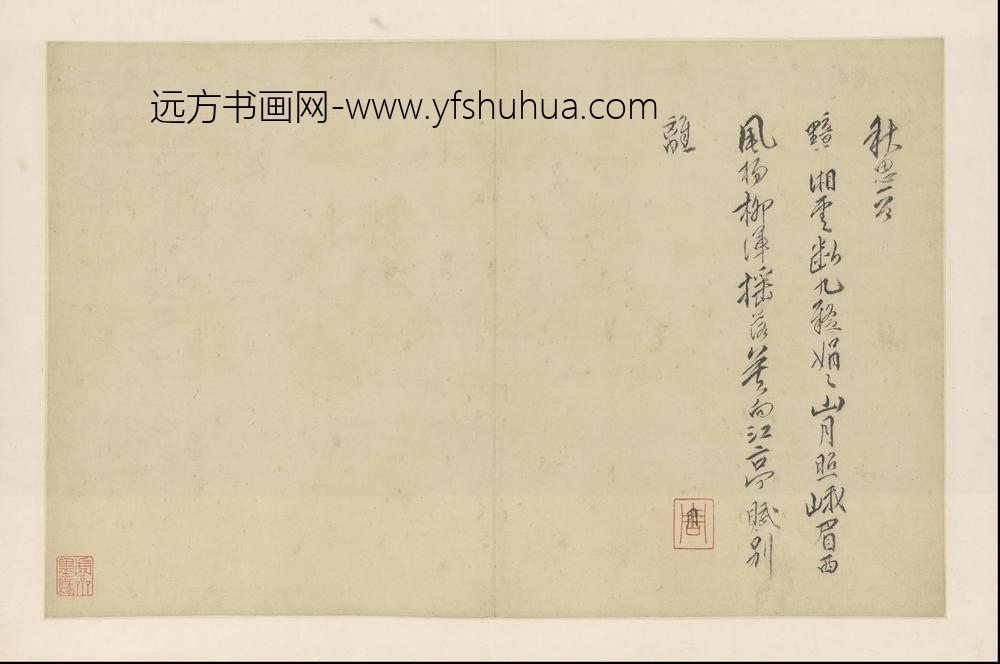 远方书画网-www.yfshuhua.com
秋思一首
黯〻湘雲斷九疑娟〻山月照峨眉西
風楊柳渾搖落莫向江亭賦別
離
虛齋墨緣